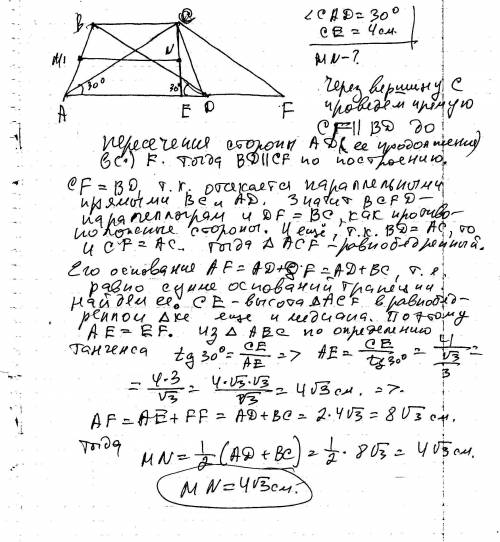 ∠CAD=30°
CE=4см.
MN-?
B C
M N
30° 30°
A E D F
Через вершину C
проведем прямую
CF∥BD до
пересечения стороны AD (ее продолжения)
в(·) F. Тогда BD∥CF по построению.
CF=BD, т.к. отсекается параллельными
прямыми BC и AD. Значит BCFD-
параллелограм и DF=BC, как противо-
положные стороны. И ещё, т.к. BD=AC, то
и CF=AC. Тогда △ACF-равнобедренный.
Его основание AF=AD+DF=AD+BC, т.е.
равно сумме оснований трапеции.
Найдем ее. CE-высота △ACF в равнобед-
ренном △ке еще и медиана. Поэтому
AE=EF. Из △AEC по определению
тангенса tg30°=CE/AE => AE=CE/tg30°=4/(√3/3)=
=4·3/√3=4·√3·√3/√3=4√3см. =>
AF=AE+FF=AD+BC=2·4√3=8√3см.
Тогда
MN=1/2(AD+BC)=1/2·8√3=4√3см.
MN=4√3см.